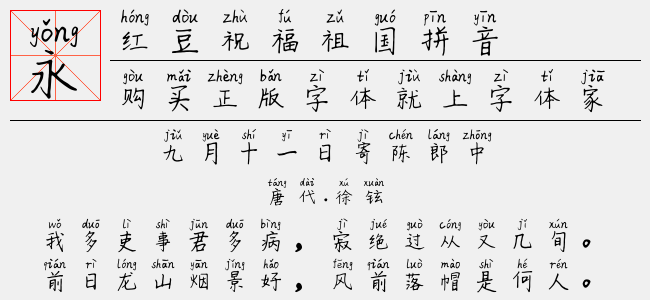 yǒng
永
hóng dòu zhù fú zǔ guó pīn yīn
红豆祝福祖国拼音
gòu mǎi zhèng bǎn zì tǐ jiù shàng zì tǐ jiā
购买正版字体就上字体家
jiǔ yuè shí yī rì jì chén láng zhōng
九月十一日寄陈郎中
táng dài xú xuàn
唐代.徐铉
wǒ duō lì shì jūn duō bìng jì jué guò cóng yòu jǐ xún
我多吏事君多病，寂绝过从又几旬。
qián rì lóng shān yān jǐng hǎo fēng qián luò mào shì hé rén
前日龙山烟景好，风前落帽是何人。